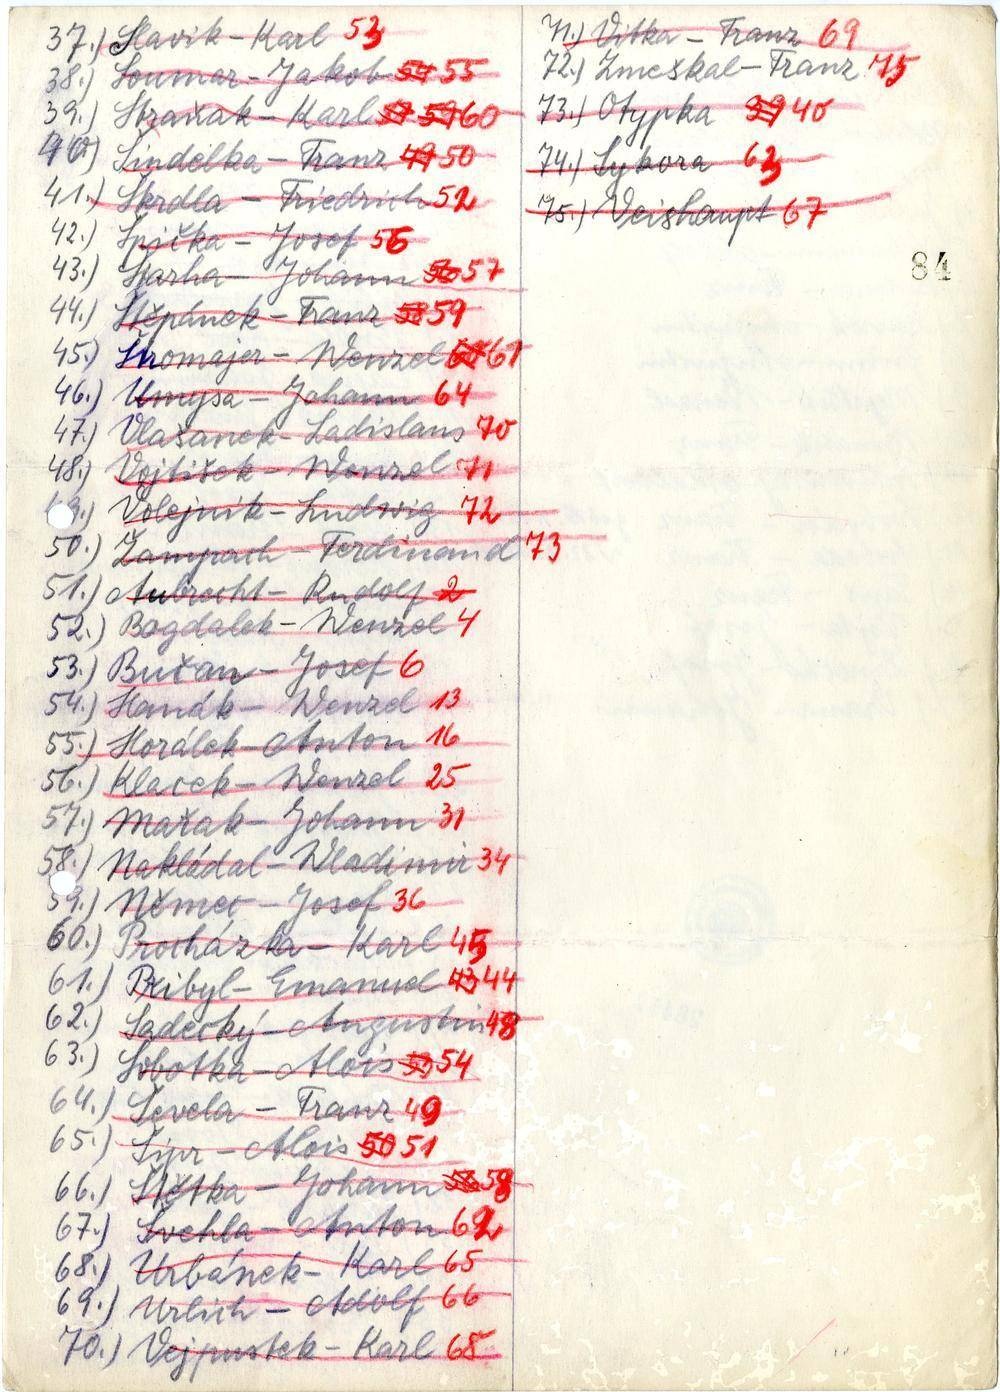 37.) Slavik - Karl 53
38.) Soumar - Jakob 54 55
39.) Stražak - Karl 57 59 60
40.) Šindelka - Franz 49 50
41.) Škrdla - Friedrich 52
42.) Špička - Josef 56
43.) Starha - Johann 56 57
44.) Štěpánek - Franz 58 59
45.) Štromajer - Wenzel 60 61
46.) Umysa - Johann 64
47.) Vlašanek - Ladislaus 70
48.) Vojtišek - Wenzel 71
49.) Volejnik - Ludwig 72
50.) Zamprach - Ferdinand 73
51.) Aubrecht - Rudolf 2
52.) Bogdalek - Wenzel 4
53.) Bučan - Josef 6
54.) Hanák - Wenzel 13
55.) Horálek - Anton 16
56.) Klacek - Wenzel 25
57.) Mažak - Johann 31
58.) Nakládal - Wladimir 34
59.) Němec - Josef 36
60.) Procházka - Karl 45
61.) Přibyl - Emanuel 43 44
62.) Sadecký - Augustin 48
63.) Sobotka - Alois 53 54
64.) Ševela - Franz 49
65.) Šipr - Alois 50 51
66.) Štětka - Johann 58
67.) Švehla - Anton 62
68.) Urbánek - Karl 65
69.) Urlich - Adolf 66
70.) Vejpustek - Karl 68
71.) Vitka - Franz 69
72.) Zmeškal - Franz 75
73.) Otypka 39 40
74.) Sykora 63
75.) Veishaupt 67
84